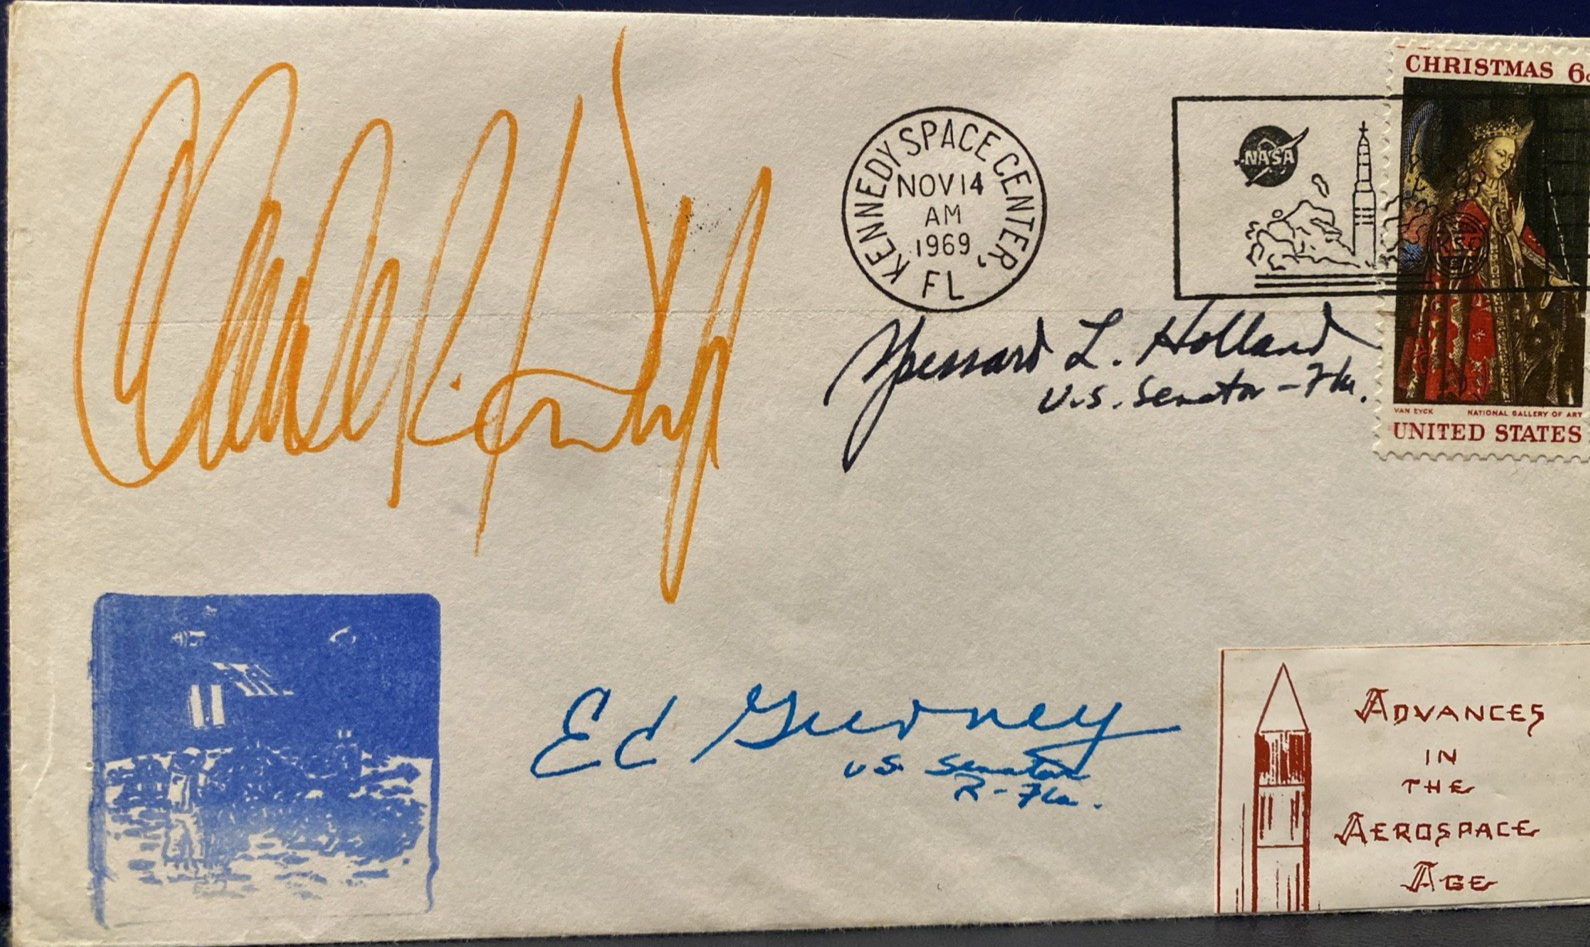 Claude R. Kirk Jr
KENNEDY SPACE CENTER, FL
NOV 14
AM
1969
NASA
CHRISTMAS 6c
VAN EYCK NATIONAL GALLERY OF ART
UNITED STATES
Spessard L. Holland
U.S. Senator - Fla.
Ed Gurney
US Senator
R-Fla.
ADVANCES
IN
THE
AEROSPACE
AGE